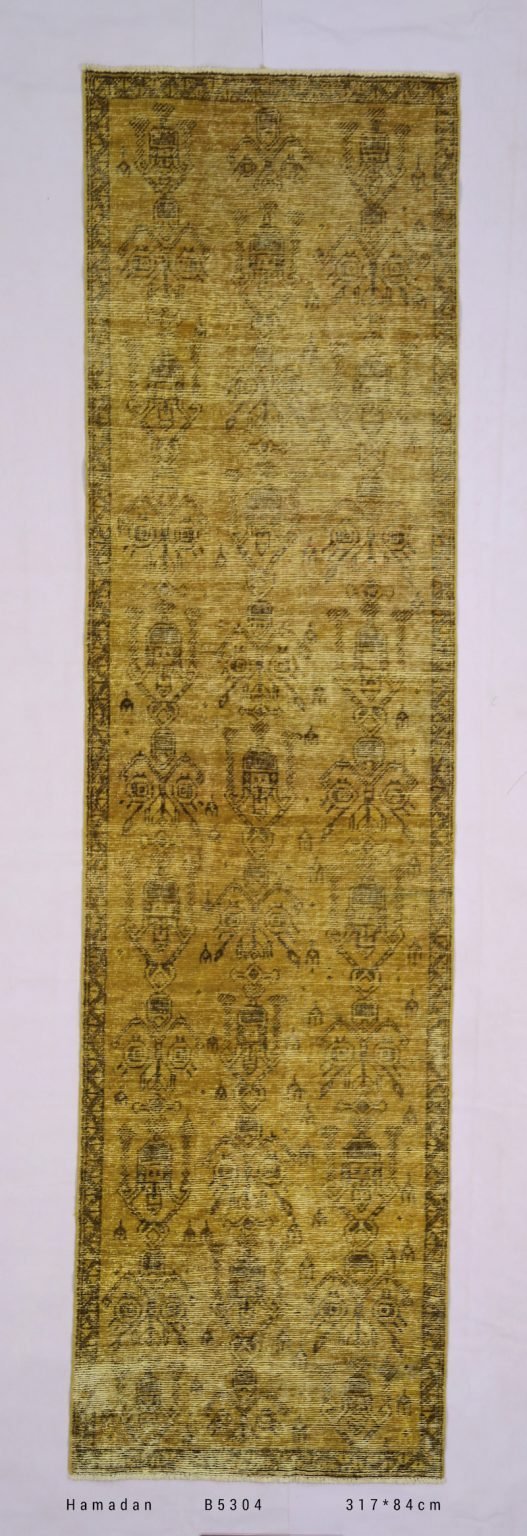 Hamadan B5304 317*84cm